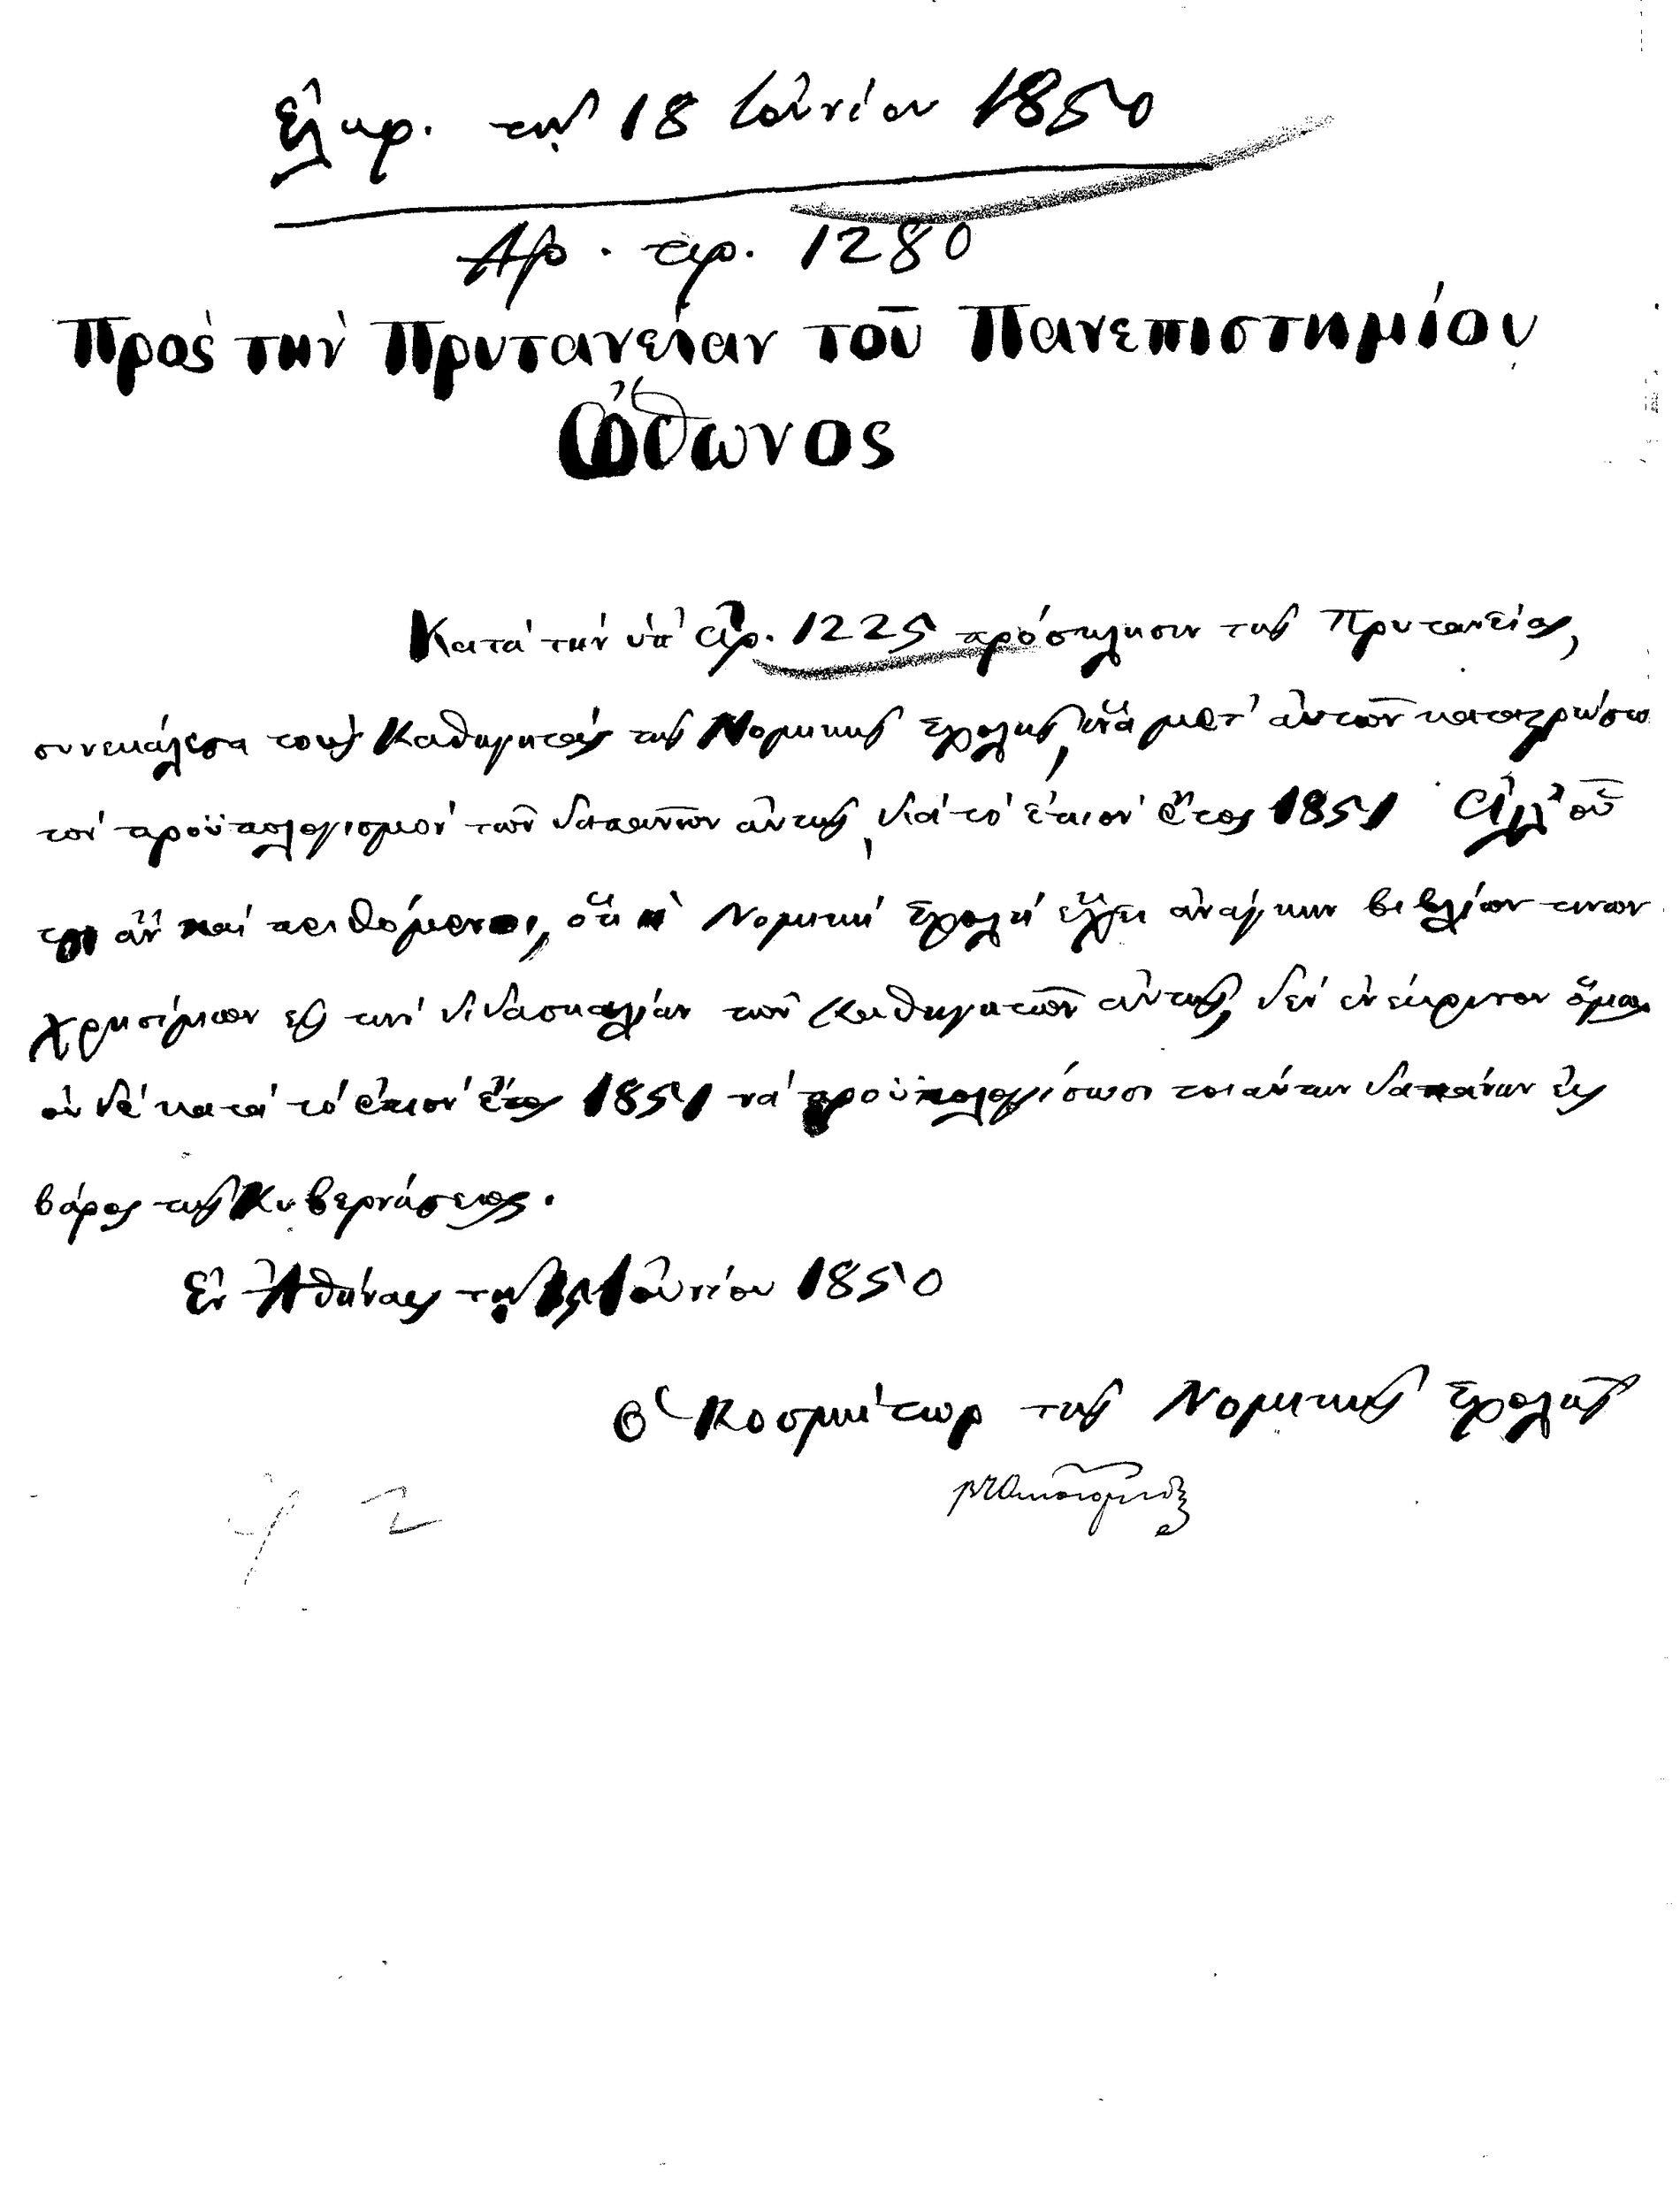 Ἐλήφ. τῇ 18 Ἰουνίου 1850
Ἀρ. πρ. 1280
Πρὸς τὴν Πρυτανείαν τοῦ Πανεπιστημίου
Ὄθωνος
Κατὰ τὴν ὑπ' ἀρ. 1225 πρόσκλησιν τῆς Πρυτανείας,
συνεκάλεσα τοὺς Καθηγητὰς τῆς Νομικῆς Σχολῆς, ἵνα μετ' αὐτῶν καταστρώσω
τὸν προϋπολογισμὸν τῶν δαπανῶν αὐτῆς, διὰ τὸ ἐπιὸν ἔτος 1851 Ἀλλ' οὗ
τοι ἂν καὶ πειθόμενοι, ὅτι ἡ Νομικὴ Σχολὴ ἔχει ἀνάγκην βιβλίων τινων
χρησίμων εἰς τὴν διδασκαλίαν τῶν Καθηγητῶν αὐτῆς, δὲν ἐνέκρινον ὅμως
οὐδὲ κατὰ τὸ ἐπιὸν ἔτος 1851 νὰ προϋπολογίσωσι τοιαύτην δαπάνην εἰς
βάρος τῆς Κυβερνήσεως.
Ἐν Ἀθήναις τῇ 15 Ἰουνίου 1850
Ὁ Κοσμήτωρ τῆς Νομικῆς Σχολῆς